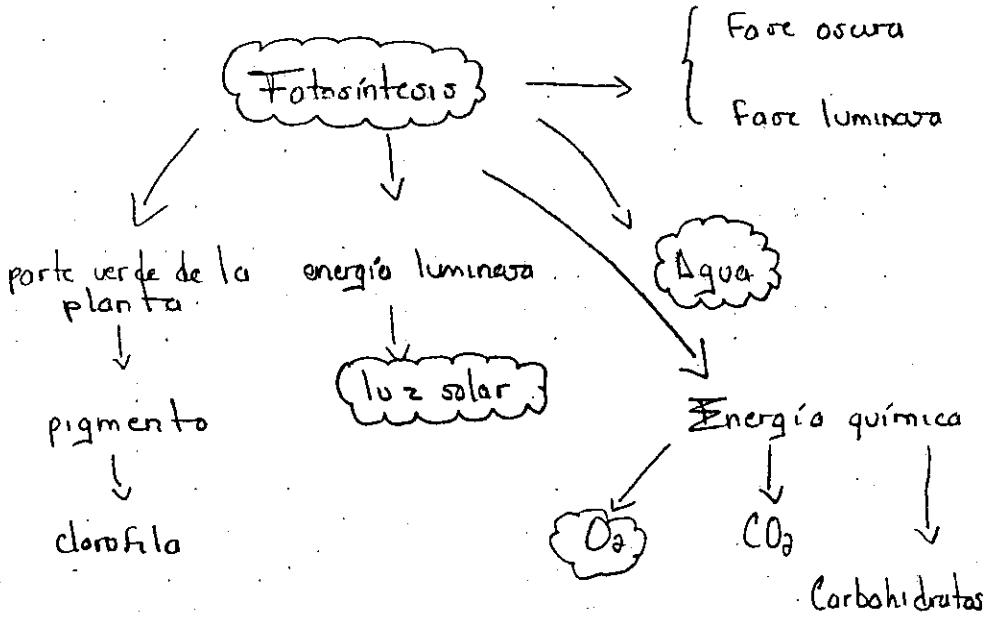 Fotosíntesis
Fase oscura
Fase luminosa
parte verde de la
planta
energía luminosa
Agua
pigmento
luz solar
Energía química
clorofila
O₂
CO₂
Carbohidratos